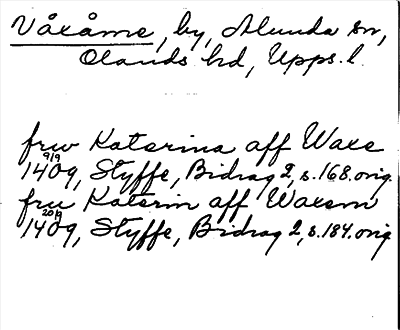 Våxåme, by, Alunda sn,
Olands hd, Upps. l.
frw Katerina aff Waxe
9/9
1409, Styffe, Bidrag 2, s. 168. orig.
fru Katerin aff Waxem
20/9
1409, Styffe, Bidrag 2, s. 184. orig.